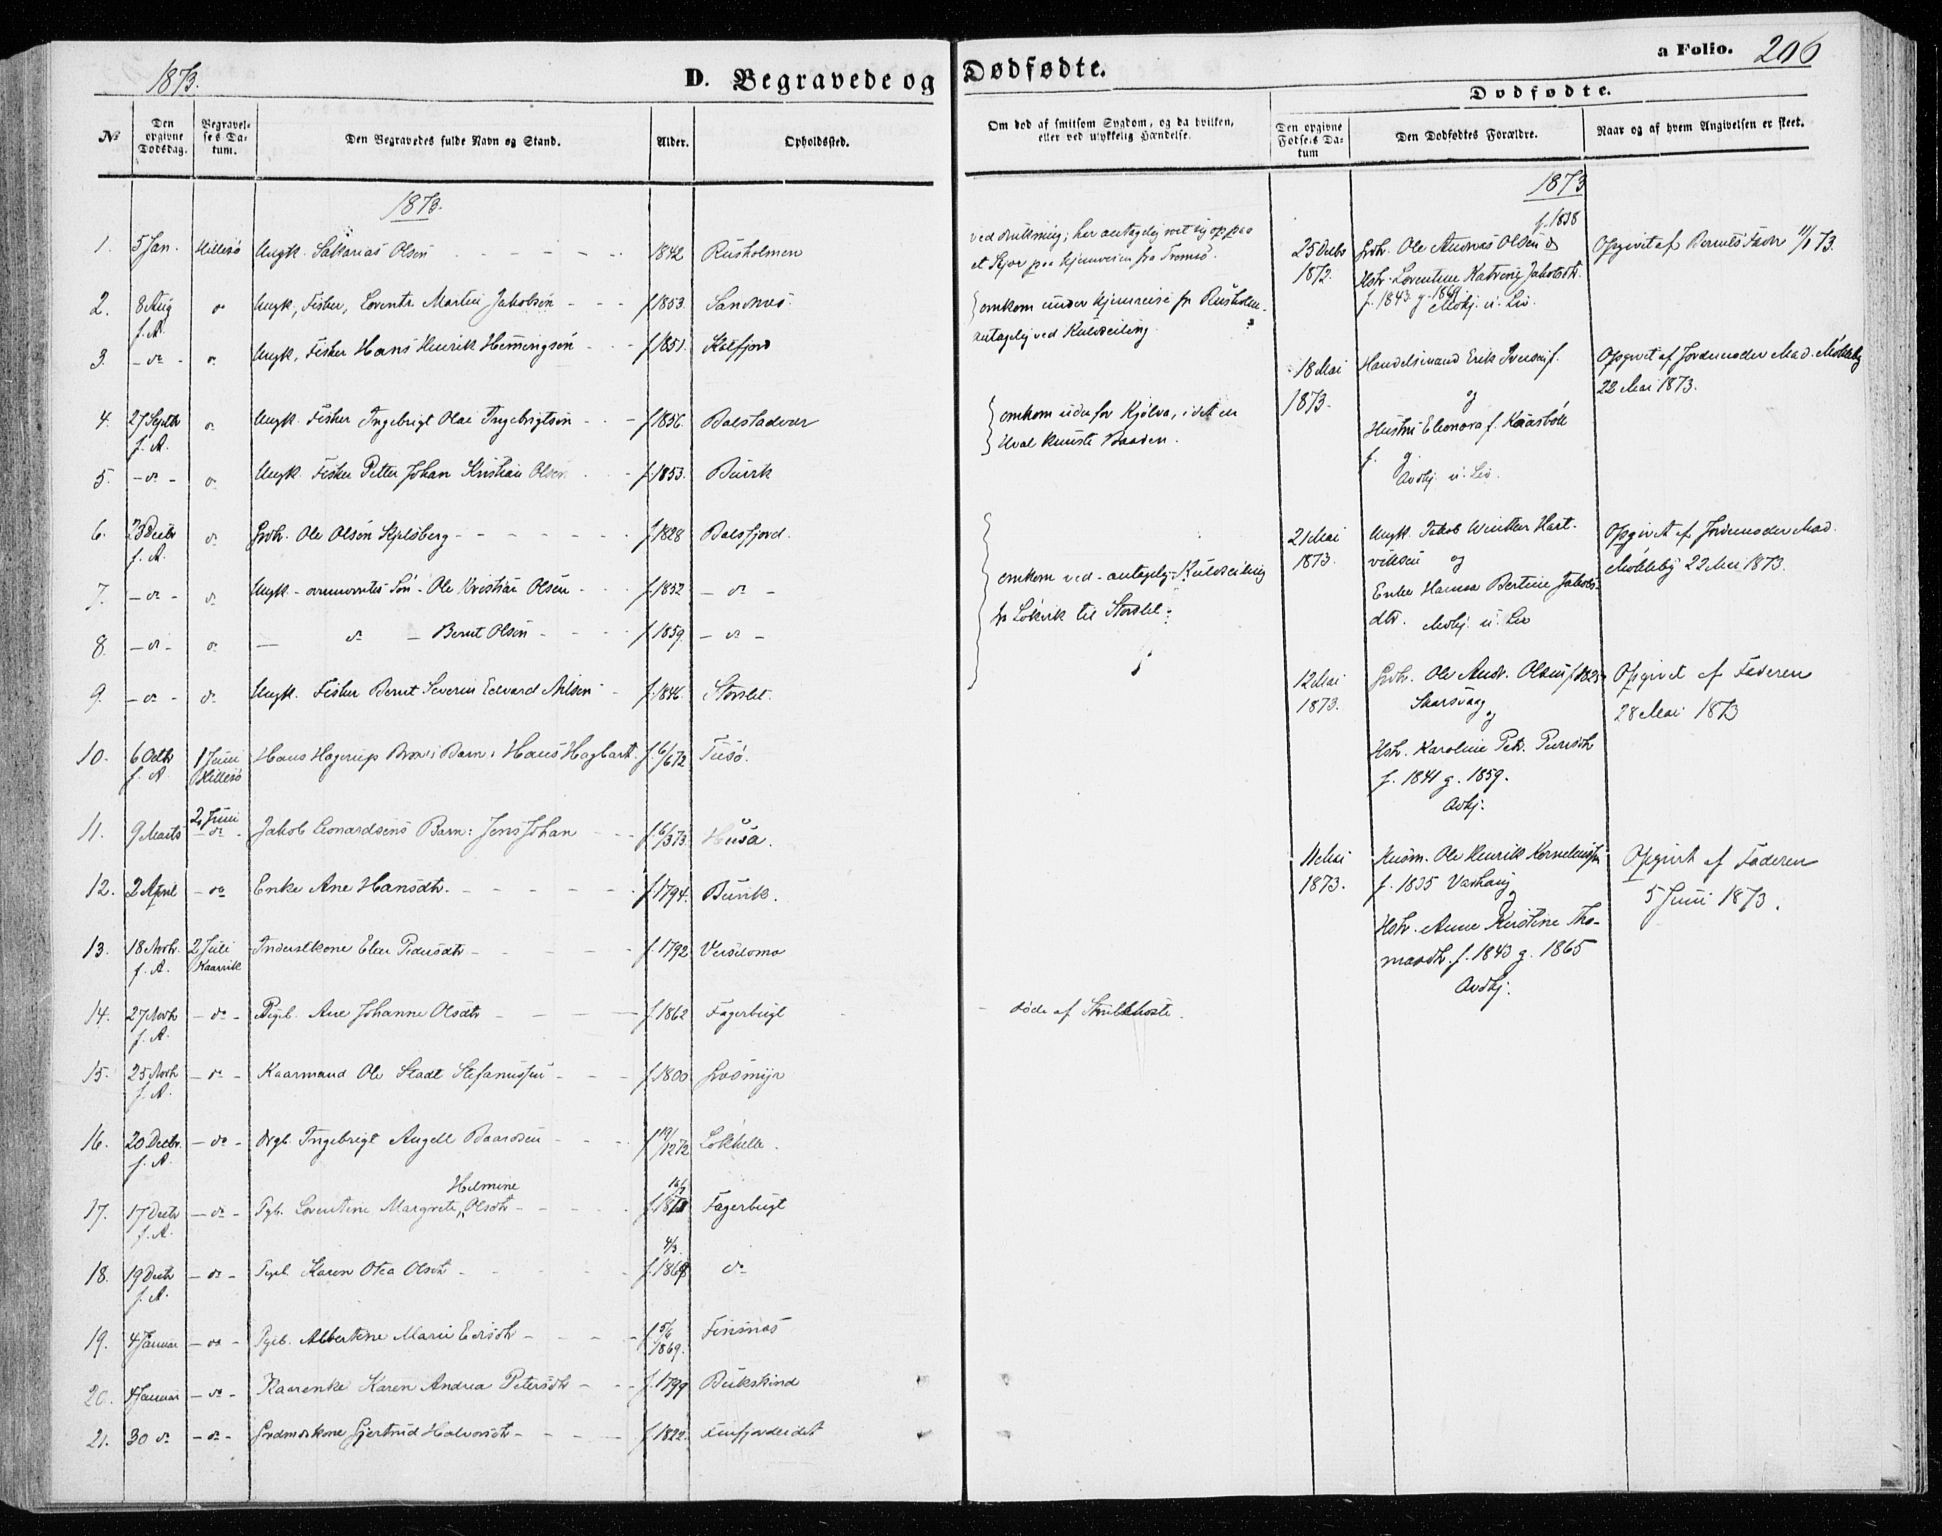 1873.
D. Begravede og Dødfødte.
a Folio. 206
Dødfødte.
No
Den opgivne Dødsdag.
Begravelses Datum.
Den Begravedes fulde Navn og Stand.
Alder.
Opholdssted.
Om død af smitsom Sygdom, og da hvilken, eller ved ulykkelig Hændelse.
Den opgivne Fødsels Datum
Den Dødfødtes Forældre.
Naar og af hvem Angivelsen er skeet.
1873.
1. 5 Jan. Hillesø Ungk. Sakarias Olsen 1842 Rusholmen
2. 8 Aug f.A. do Ungk, Fisker, Martin Jakobsen f. 1853. Sandnes.
3. -do- do Ungk, Fisker Hans Henrik Hemingsen f. 1851. Kalfjord
4. 27 Septbr f.A. do Ungk. Fisker Ingebrigt Olai Ingebrigtsen f. 1856.
5. -do- do Ungk. Fisker Petter Johan Kristian Olsen f. 1853. Buvik
6. 23 Decbr f.A. do Grdbr. Ole Olsen Kjelsberg f. 1828 Balsfjord.
7. -do- do Ungk - Søn - Ole Kristian Olsen f. 1852 -do-
8. -do- do — do — Bernt Olsen f. 1859. -do-
9. -do- do Ungk. Fisker Bernt Severin Edvard Nilsen f. 1846. Storslet.
10. 6 Octbr f.A. 1 Juni Hillesø Hans Hagerup Barn: Hans Hagbart f. 6/6 72 Tusø.
11. 9 Marts 2 Juni -do- Jakob Leonardsens Barn: Jens Johan f. 6/3 73. Husa.
12. 2 April -do Enke Ane Hansdtr. f. 1794. Buvik.
13. 18 Novbr. f.A. 2 Juli Kaarvik Inderstkone Elen Pedersdtr f. 1792
14. 27 Novbr f.A. -do- Pigeb. Ane Johanne Olsdtr f. 1862 Fagerbugt
15. 25 Novbr f.A. -do- Kaarmand Ole Stefanussen f. 1800 Grosmyr
16. 20 Decbr. f.A. -do- Drgb. Ingebrigt Angell Baardsen f. 19/12 72 Løkhelle.
17. 17 Decbr f.A. -do- Pgb. Loventine Margrete Helmine Olsdtr Fagerbugt
18. 19 Decbr f.A. -do- Pigeb. Karen Olea Olsdtr f. 4/3. 1868 do
19. 4 Januar -do- Pgeb. Albertine Marie f. 5/6 1869. Finsnæs
20. 4 Januar -do- Kaarenke Karen Andrea Petersdtr f. 1799 Bukskind
21. 30 do -do- Gjertrud Halvorsdtr f. 1822. Finfjordeidet
ved
et Skjær paa Hjemveien fra Tromsø.
omkom under Hjemreise fra Rusholm.
antagelig ved Kulseiling.
omkom udenfor Kjølva, idet en
Hval knuste Baaden.
omkom ved - antagelig - Kulseiling
fra Løkvik til Storslet.
døde af Strubehoste.
1873
25 Decbr 1872.
f. 1838
Grdbr. Ole Andreas Olsen og
Hstr. Loventine Katrine Jakobsdtr.
f. 1843. g. 1864
u. Liv.
Opgivet af Barnets Fader 11/1 73.
18 Mai 1873.
Handelsmand Erik
og
Hustru Eleonora f. Kaasbøll
f. g.
u. Liv.
Opgivet af Jordemoder Mad. Møkleby
22 Mai 1873.
21 Mai 1873.
Ungk. Jakob Winther Hart-
viksen og
Enke Hanna Bertine Jakobs-
dtr. u. Liv
Opgivet af Jordemoder Mad.
Møkleby 22 Mai 1873.
12 Mai 1873.
Grdbr. Ole Andr. Olsen f. 1825
Skarsvaag
og
Hstr. Karoline Petr.
f. 1841 g. 1859.
Opgivet af Faderen
28 Mai 1873
11 Mai 1873.
Husm. Ole Henrik Korneliussen
f. 1835
og
Hstr. Anne Kirstine Tho-
masdtr. f. 1843 g. 1865
Opgivet af Faderen
5 Juni 1873.